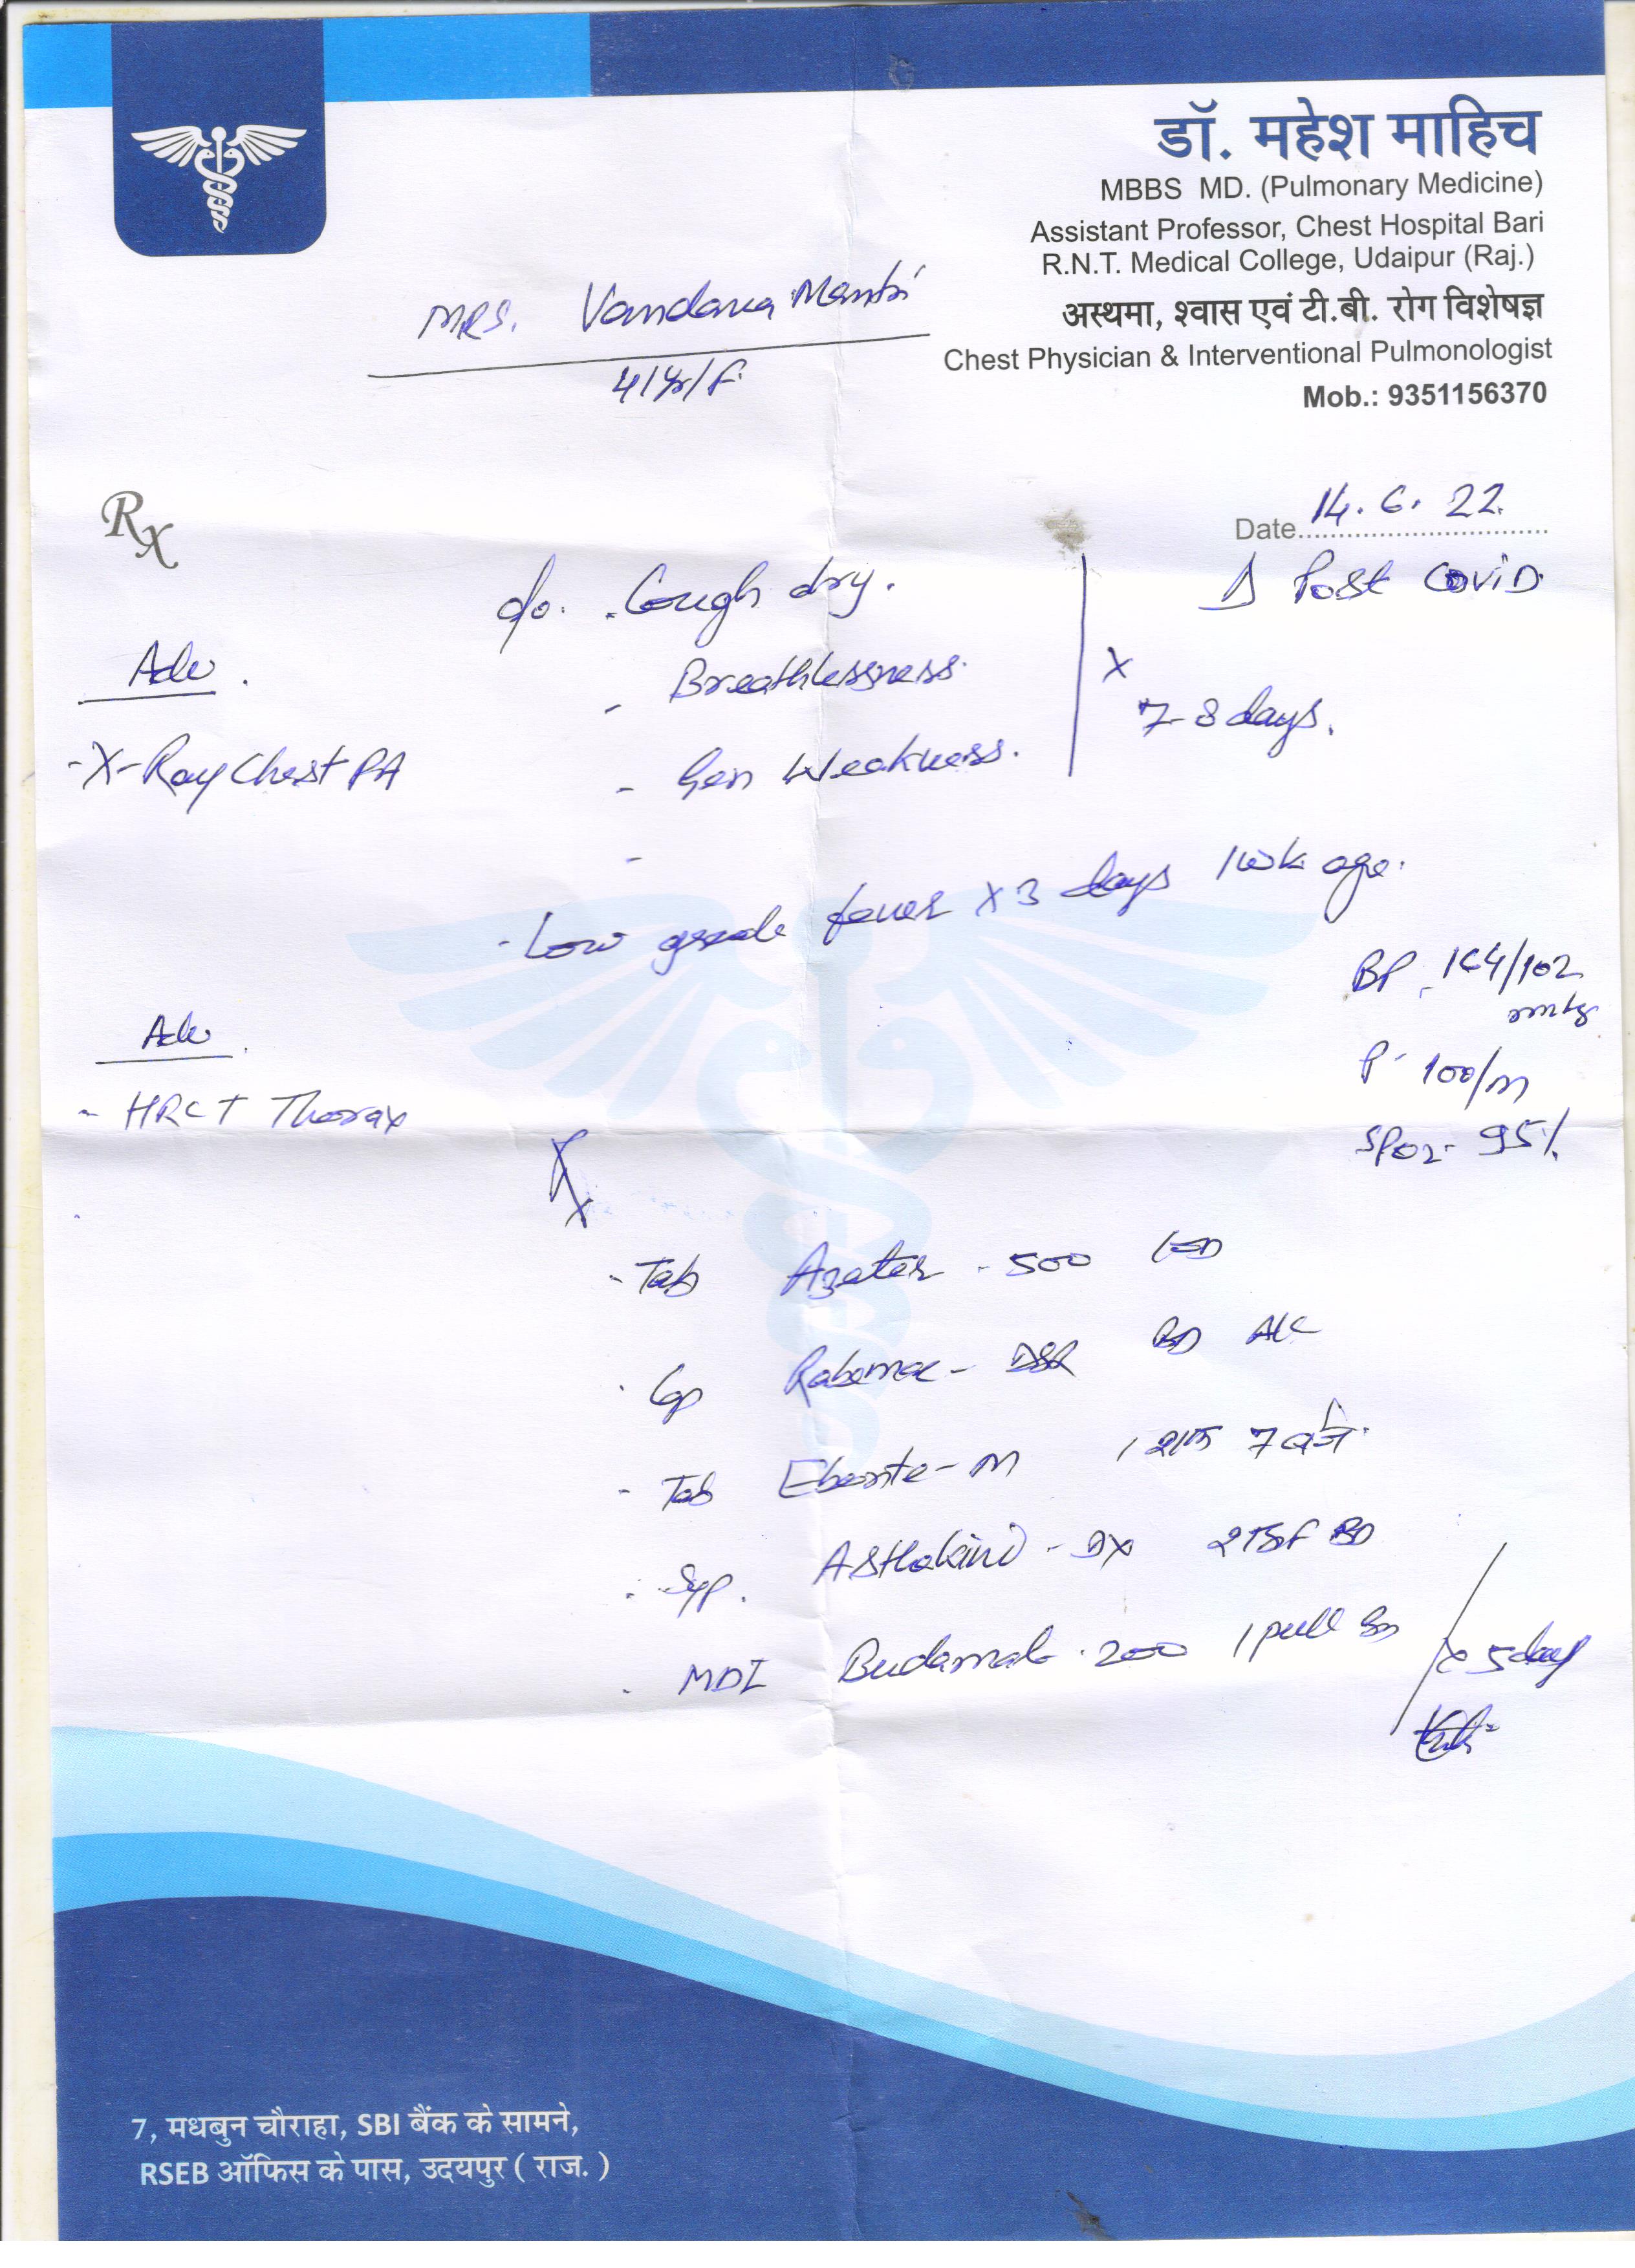 डॉ. महेश माहिच
MBBS MD. (Pulmonary Medicine)
Assistant Professor, Chest Hospital Bari
R.N.T. Medical College, Udaipur (Raj.)
अस्थमा, श्वास एवं टी.बी. रोग विशेषज्ञ
Chest Physician & Interventional Pulmonologist
Mob.: 9351156370
MRS. Vandana
41Yr/F
Rx
Date 14.6.22
Δ Post COVID
c/o. - Cough dry.
- Breathlessness.
- Gen Weakness.
x
7-8 days.
Adv.
- X-Ray Chest PA
- Low grade fever x 3 days 1 wk ago.
BP - 164/102
mmHg
P - 100/m
SPO2 - 95%
Adv.
- HRCT Thorax
Rx
- Tab 500
- Cap DSR BD
- Tab - M 1 शाम 7 बजे
- Syp. Asthakind - DX 2 TSF BD
- MDI 200 1 puff
x 5 day
7, मधबुन चौराहा, SBI बैंक के सामने,
RSEB ऑफिस के पास, उदयपुर ( राज. )